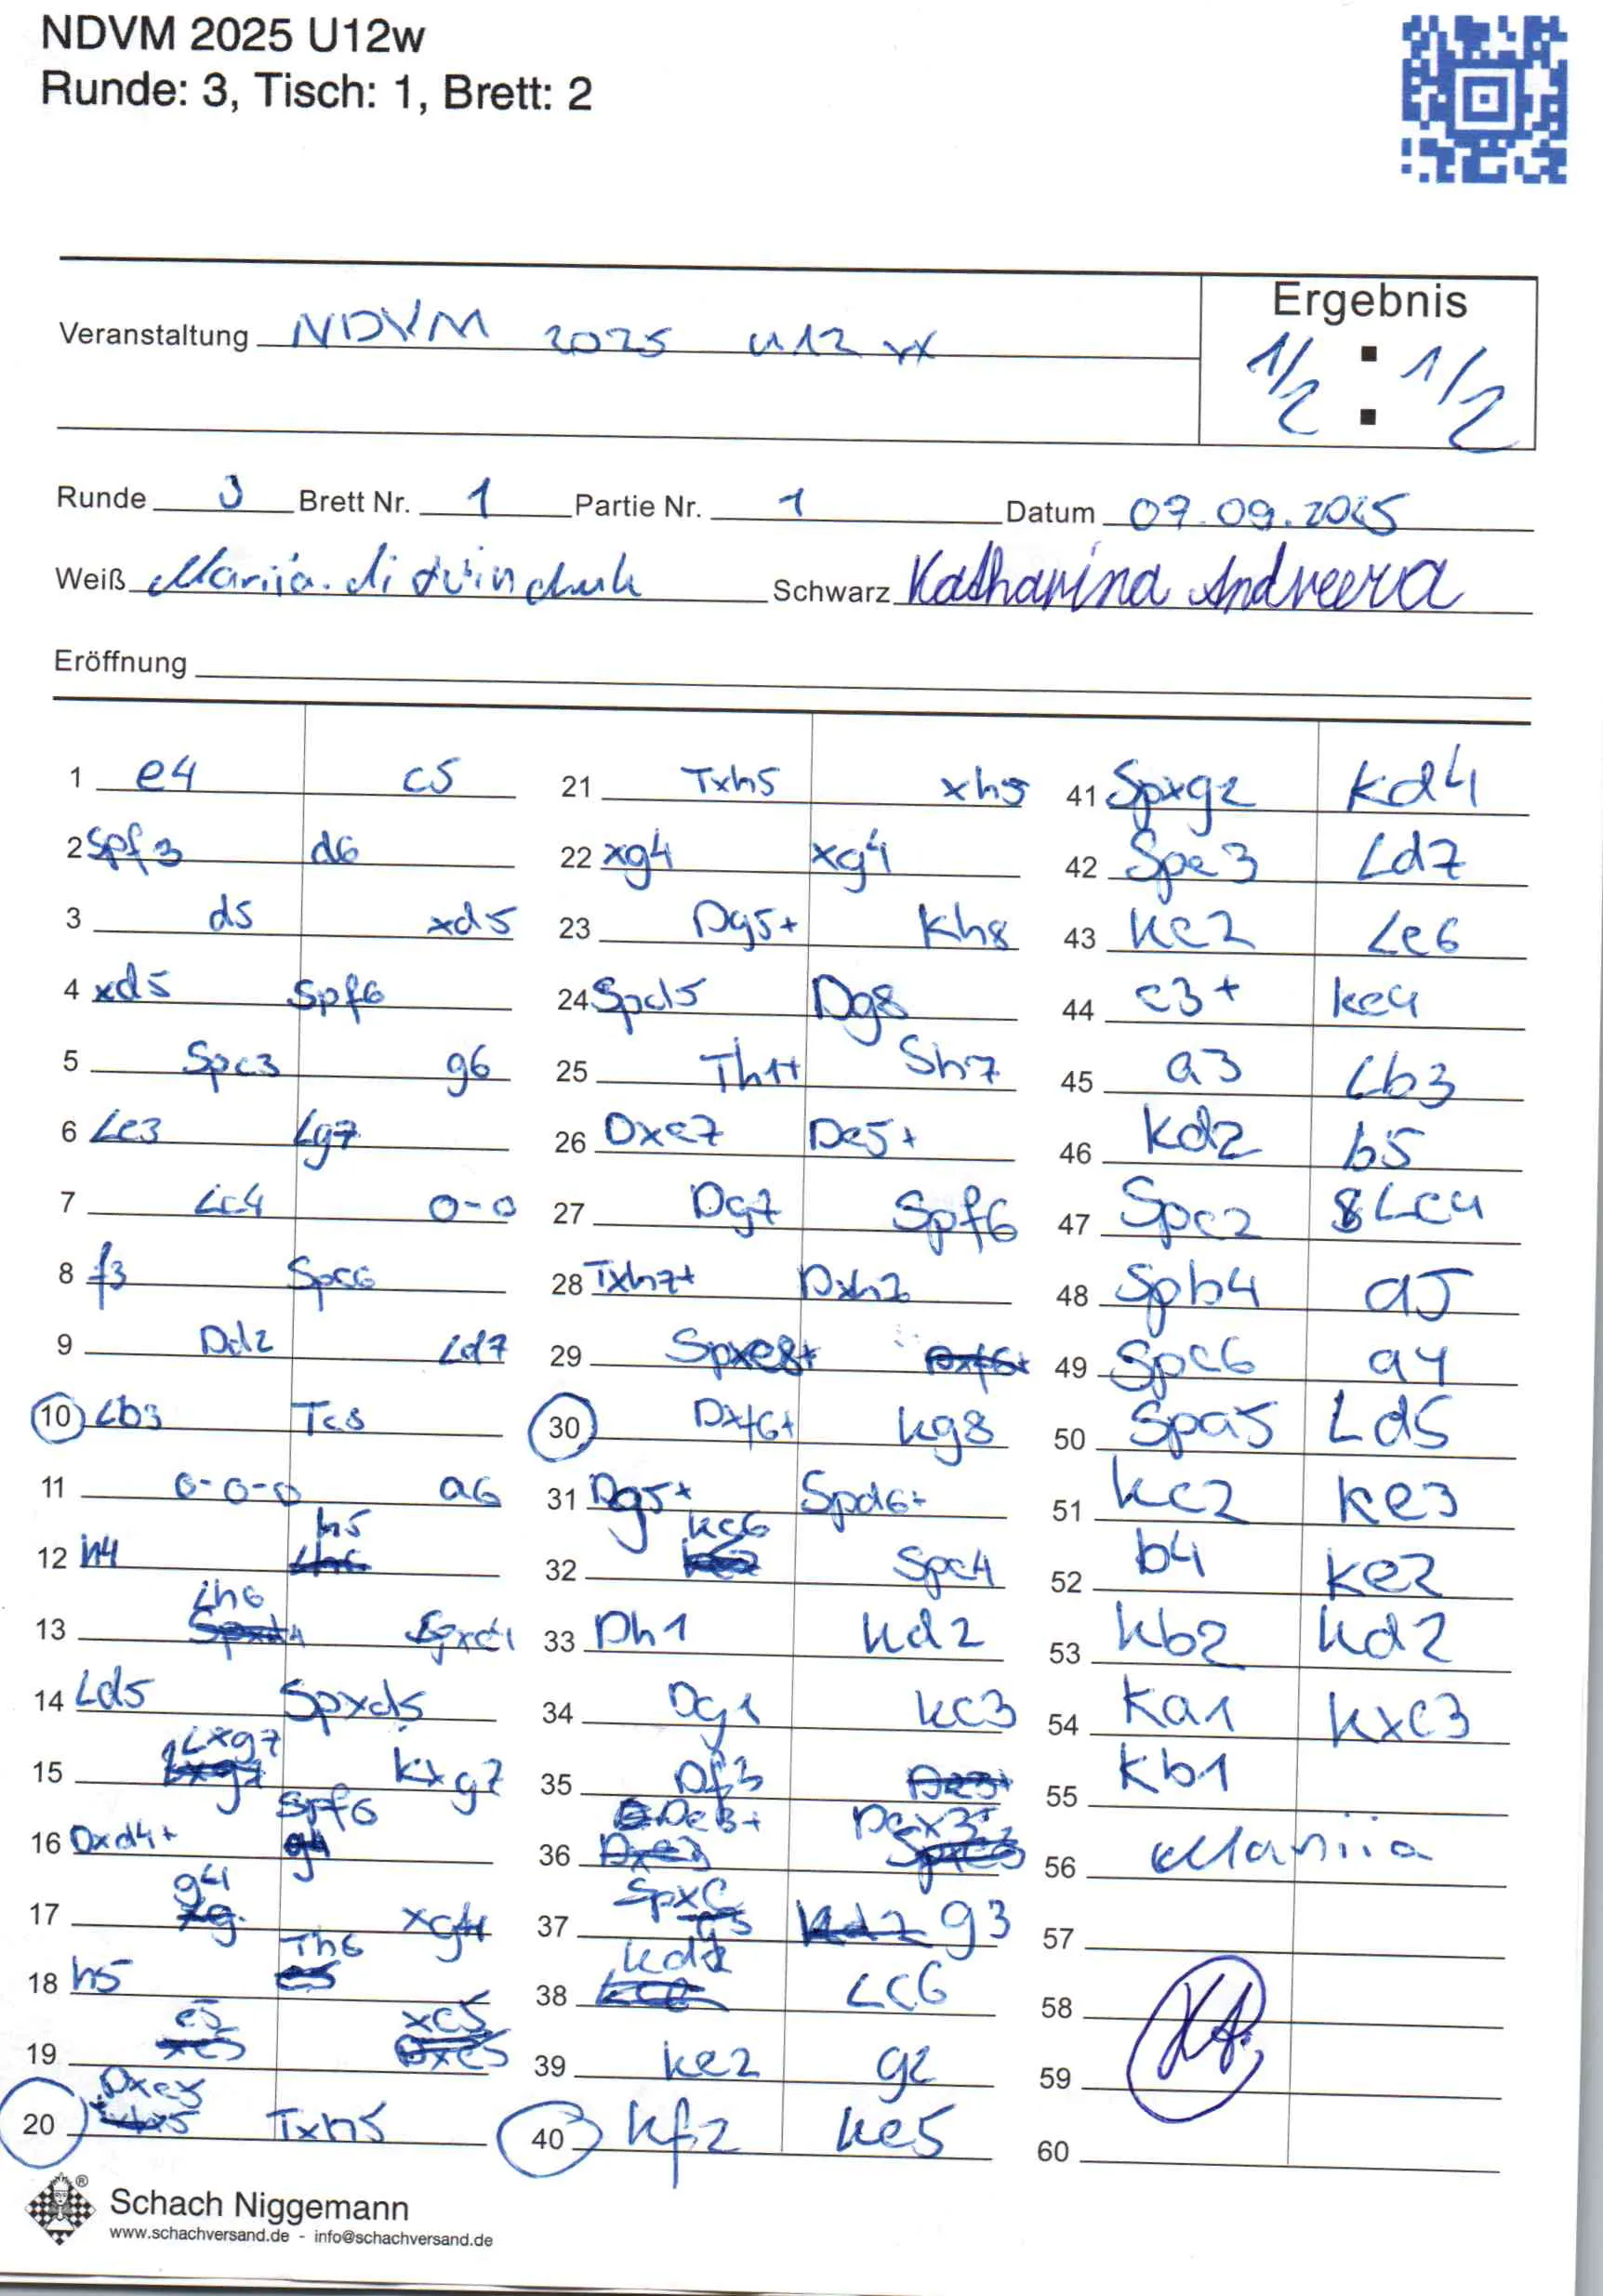 NDVM 2025 U12w
Runde: 3, Tisch: 1, Brett: 2
Veranstaltung NDVM 2025 U12 w
Ergebnis
1/2 : 1/2
Runde 3 Brett Nr. 1 Partie Nr. 1 Datum 07.09.2025
Weiß Mariia Schwarz Katharina Andreeva
Eröffnung
1 e4 c5
2 Spf3 d6
3 d5 xd5
4 xd5 Spf6
5 Spc3 g6
6 Le3 Lg7
7 Lc4 0-0
8 f3 Spc6
9 Dd2 Ld7
10 Lb3 Tc8
11 0-0-0 a6
12 h4 h5
13 Lh6 Spxd4
14 Ld5 Spxd5
15 Lxg7 Kxg7
16 Dxd4+ Spf6
17 g4 xg4
18 h5 Th6
19 e5 xe5
20 Dxe5 Txh5
21 Txh5 xh5
22 xg4 xg4
23 Dg5+ Kh8
24 Spd5 Dg8
25 Th1+ Sh7
26 Dxe7 De5+
27 Dg7 Spf6
28 Txh7+ Dxh2
29 Spxe8+
30 Dxf6+ Kg8
31 Dg5+ Spd6+
32 Kc6 Spc4
33 Dh1 Kd2
34 Dg1 Kc3
35 Df3
36 De3+ Dex3+
37 g3
38 Kd2 Lc6
39 Ke2 g2
40 Kf2 Ke5
41 Spxg2 Kd4
42 Spe3 Ld7
43 Ke2 Le6
44 c3+ Ke4
45 a3 Lb3
46 Kd2 b5
47 Spc2 Lc4
48 Spb4 a5
49 Spc6 a4
50 Spa5 Ld5
51 Kc2 Ke3
52 b4 Ke2
53 Kb2 Kd2
54 Ka1 Kxc3
55 Kb1
56 Mariia
57
58 KA.
59
60
Schach Niggemann
www.schachversand.de - info@schachversand.de